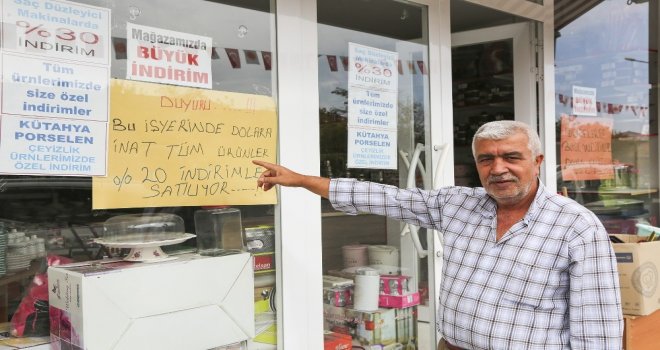 Saç Düzleyici
Makinalarda
%30
İNDİRİM
Tüm
ürnlerimizde
size özel
indirimler
KÜTAHYA
PORSELEN
ÇEYİZLİK
ÜRNLERİMİZDE
Mağazamızda
BÜYÜK
İNDİRİM
DUYURU !!!
BU İŞYERİNDE DOLARA
İNAT TÜM ÜRÜNLER
% 20 İNDİRİMLE
SATILIYOR.....!
Saç Düzleyici
Makinalarda
%30
İNDİRİM
Tüm
ürnlerimizde
size özel
indirimler
KÜTAHYA
PORSELEN
ÇEYİZLİK
ÜRNLERİMİZDE
BÜYÜK
İNDİRİM